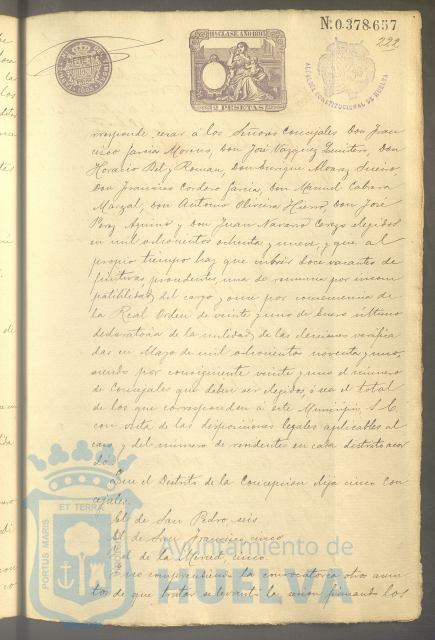 Nº 0.378.657
222
11ª CLASE. AÑO 1893
2 PESETAS
ALCALDIA CONSTITUCIONAL DE HUELVA
rresponde, cesar á los Señores Concejales Don Fran
cisco Garcia Morens, Don José Vazquez Quintero, Don
Horacio Bel y Roman, Don Enrique Alvarez
Don Francisco Cordero Garcia, Don Manuel Cabera
Marzal, Don Antonio Oliveira Hierro, Don José
Perez Aquino y Don Juan Navarro Cerezo elejidos
en mil ochocientos ochenta y nueve, y que al
propio tiempo hay que cubrir doce vacantes de
procedentes, una de renuncia por incom
patibilidad del cargo y once por consecuencia de
la Real Orden de veinte y uno de Enero último
declaratoria de la nulidad de las elecciones verifica
das en Mayo de mil ochocientos noventa y uno,
siendo por consiguiente veinte y uno el número
de Concejales que deben ser elejidos, ó sea el total
de los que corresponden á este Municipio, S. E.
con vista de las disposiciones legales aplicables al
caso y del número de residentes en cada distrito acor
dó
Que el Distrito de la Concepcion elija cinco Con
cejales.
El de San Pedro, seis
El de San Francisco, cinco
El de la Merced, cinco
no comprendiendo la convocatoria otro asun
to de que tratar se levantó la sesion firmando los
PORTUS MARIS ET TERRAE
Ayuntamiento de
HUELVA